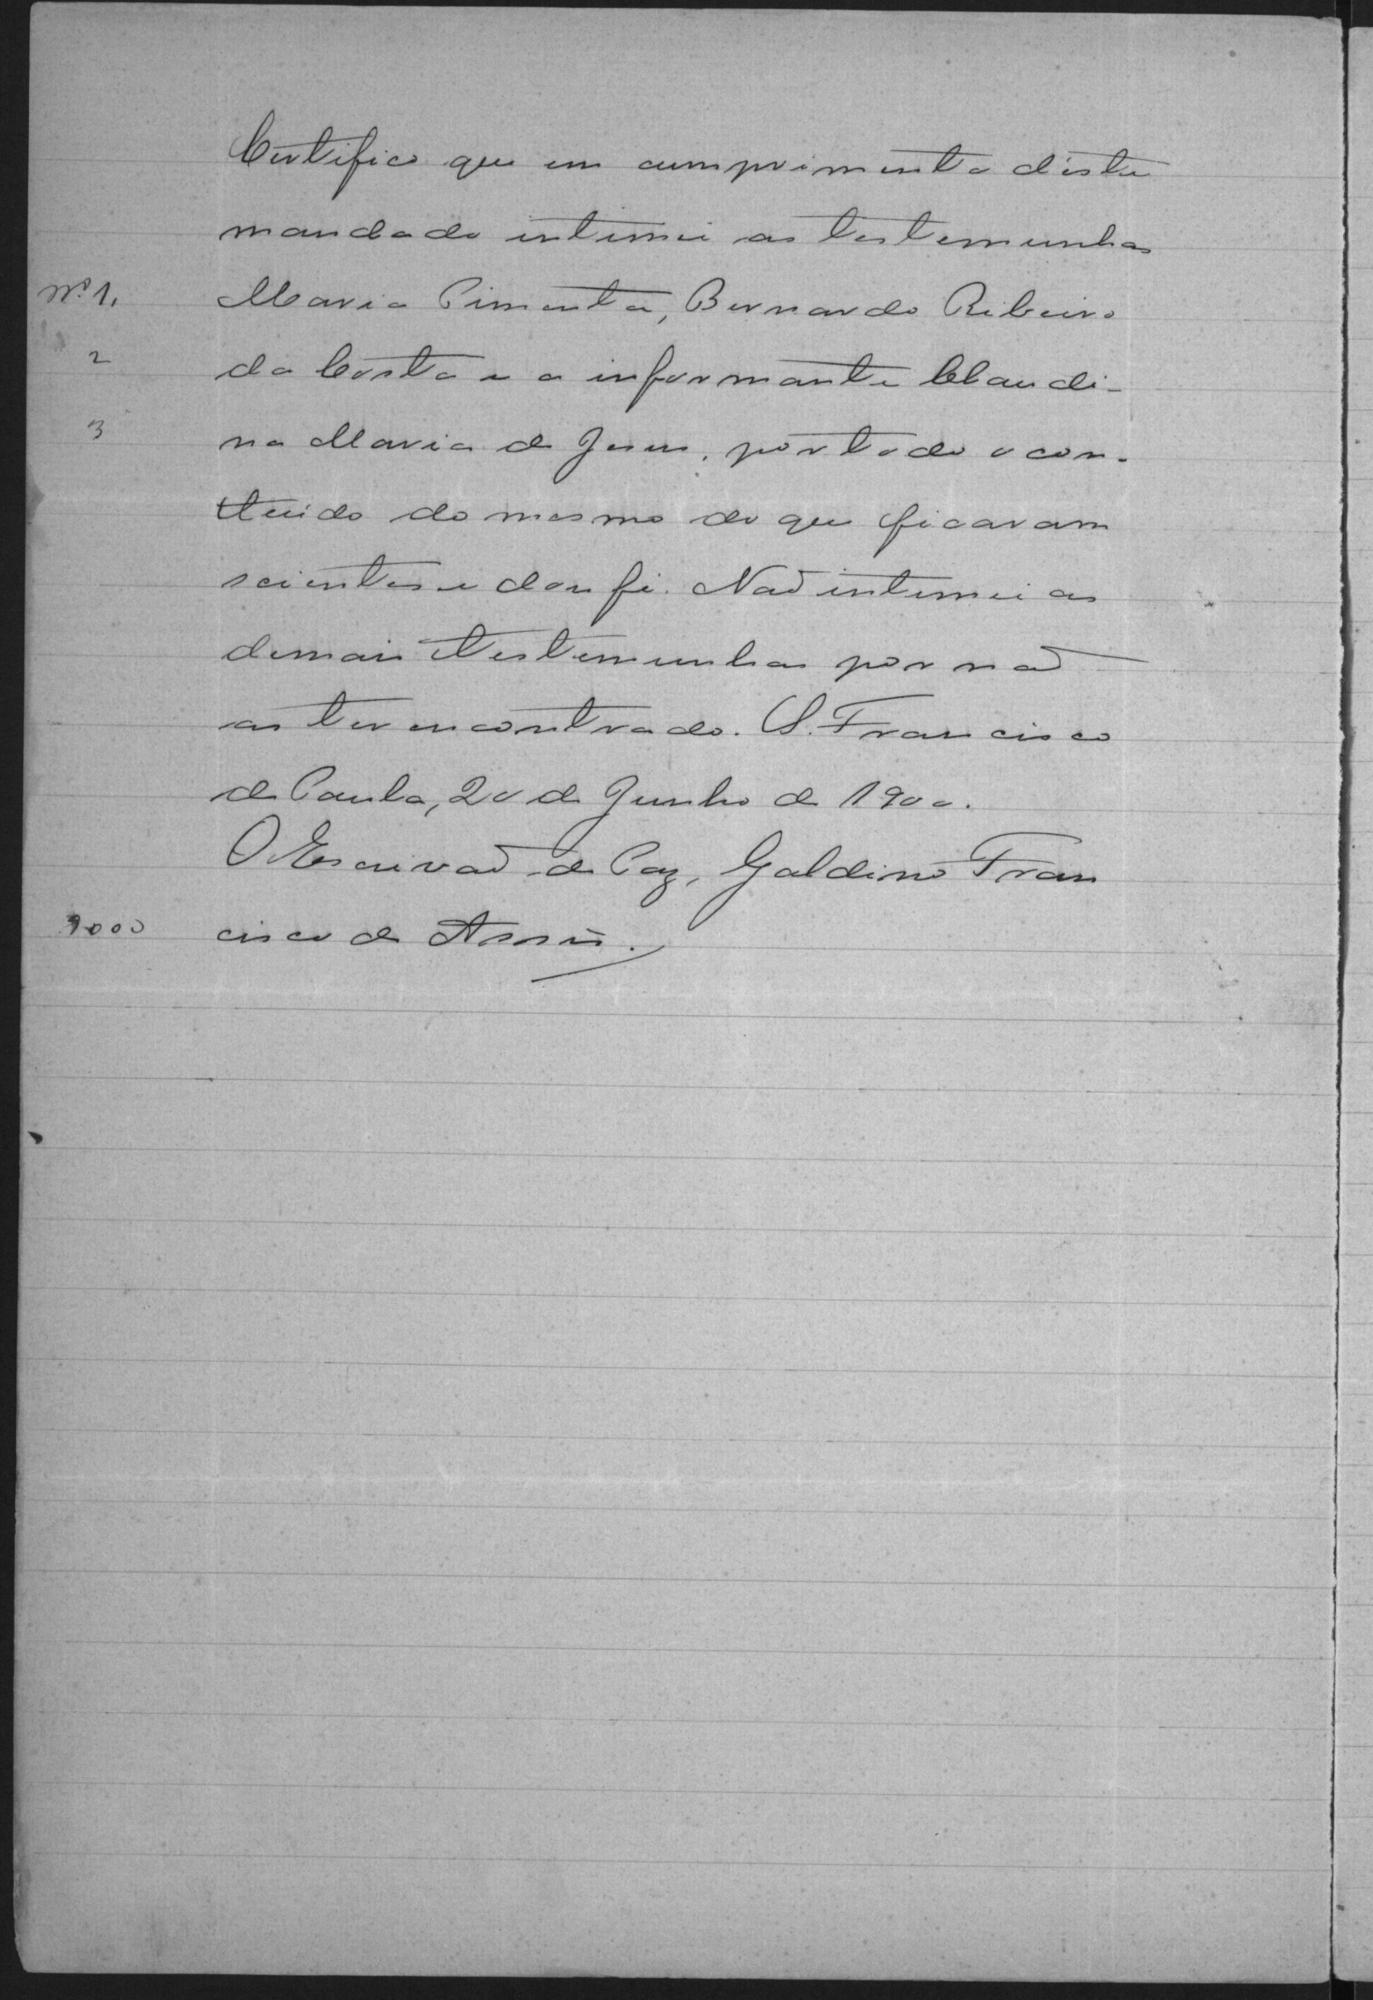 Certifico que em cumprimento d'este
mandado intimei as testemunhas
Nº 1. Maria Pimenta, Bernardo Ribeiro
2 da Costa e a informante Claudi-
3 na Maria de Jesus, por todo o con-
teúdo do mesmo do que ficaram
scientes e dou fé. Naõ intimei as
demais testemunhas por naõ
as ter encontrado. S. Francisco
de Paula, 20 de Junho de 1900.
O Escrivaõ de Paz, Galdino Fran
cisco de Assis.